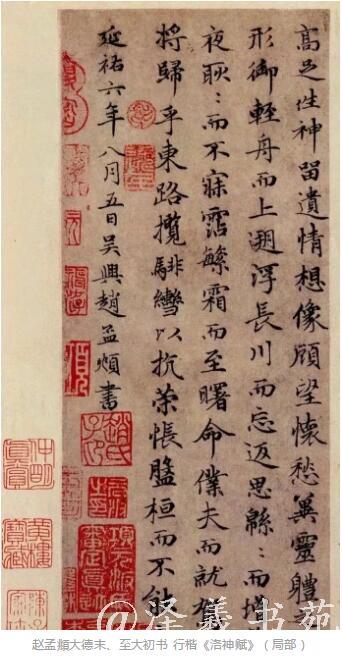 高足往神留遺情想像顧望懷愁冀靈體
形御輕舟而上遡浮長川而忘返思緜:而增
夜耿:而不寐霑繁霜而至曙命僕夫而就駕
將歸乎東路攬騑轡以抗策悵盤桓而不能
延祐六年八月五日吳興趙孟頫書
趙氏子昂
黄樓寶藏
@泽義书苑
赵孟頫大德末、至大初书 行楷《洛神赋》（局部）